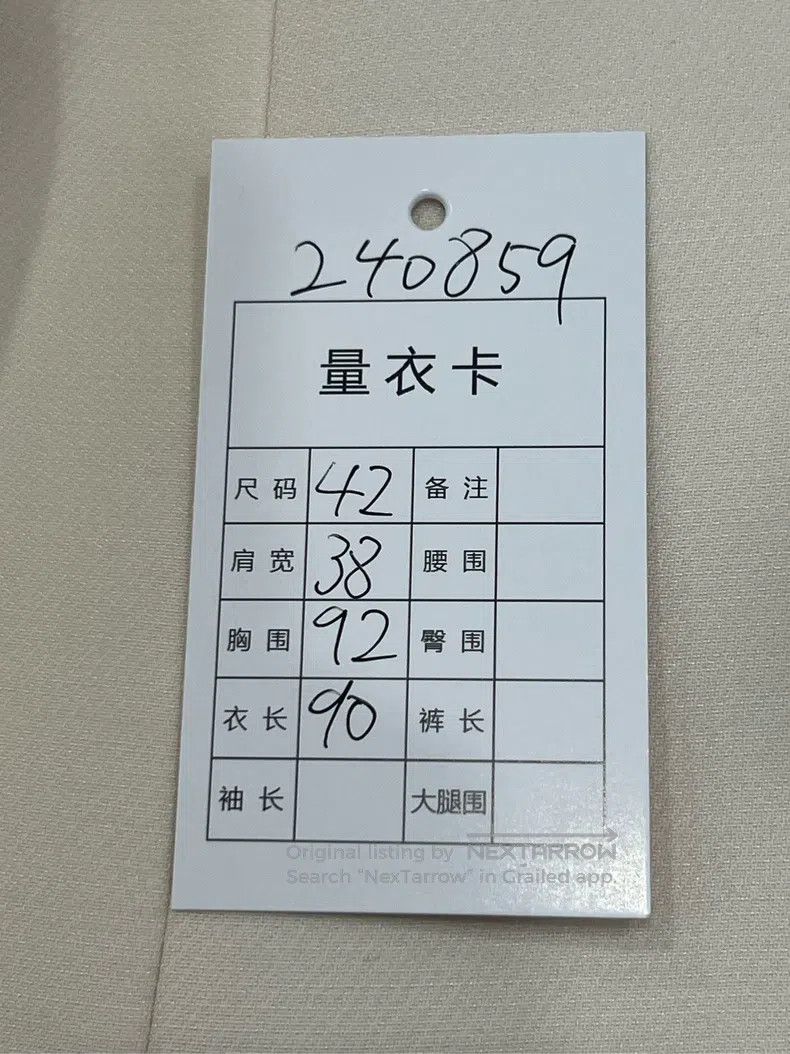 240859
量衣卡
尺码 42 备注
肩宽 38 腰围
胸围 92 臀围
衣长 90 裤长
袖长 大腿围
Original listing by NEXTARROW
Search "NexTarrow" in Crailed app.